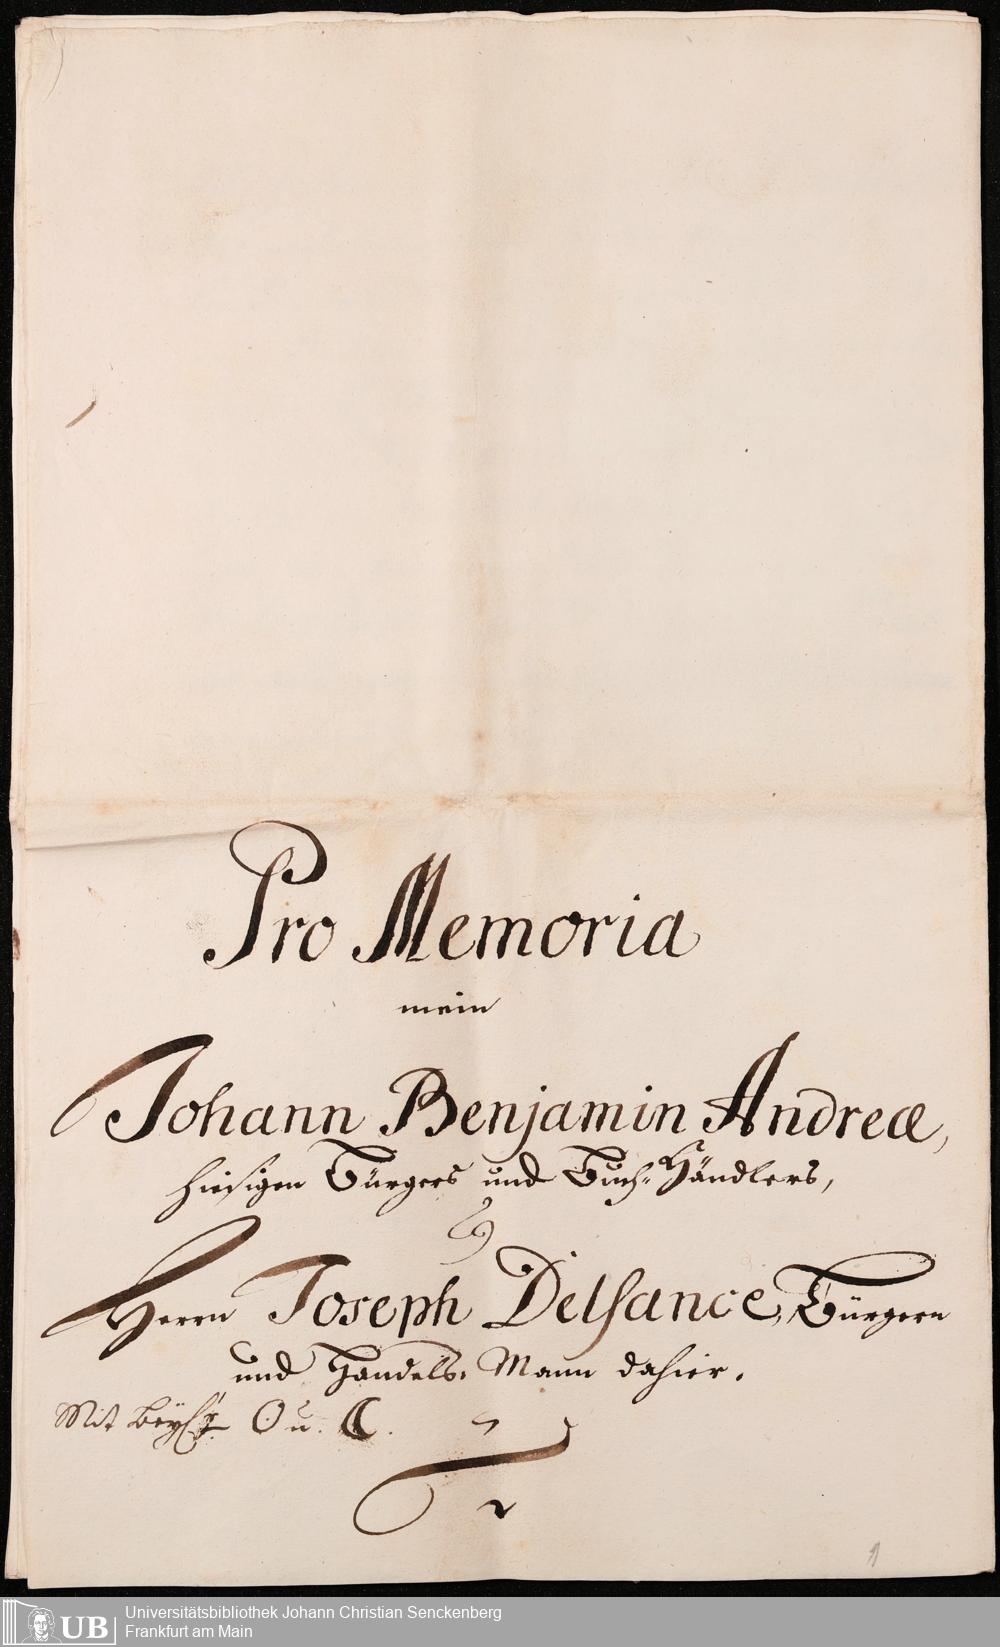 Pro Memoria
mein
Johann Benjamin Andreæ,
hiesigen Bürgers und Buch-Händlers,
Herrn Joseph Delsance, Bürgern
und Handels-Mann dahier.
Mit Beyl. u.
1
Universitätsbibliothek Johann Christian Senckenberg
Frankfurt am Main
UB